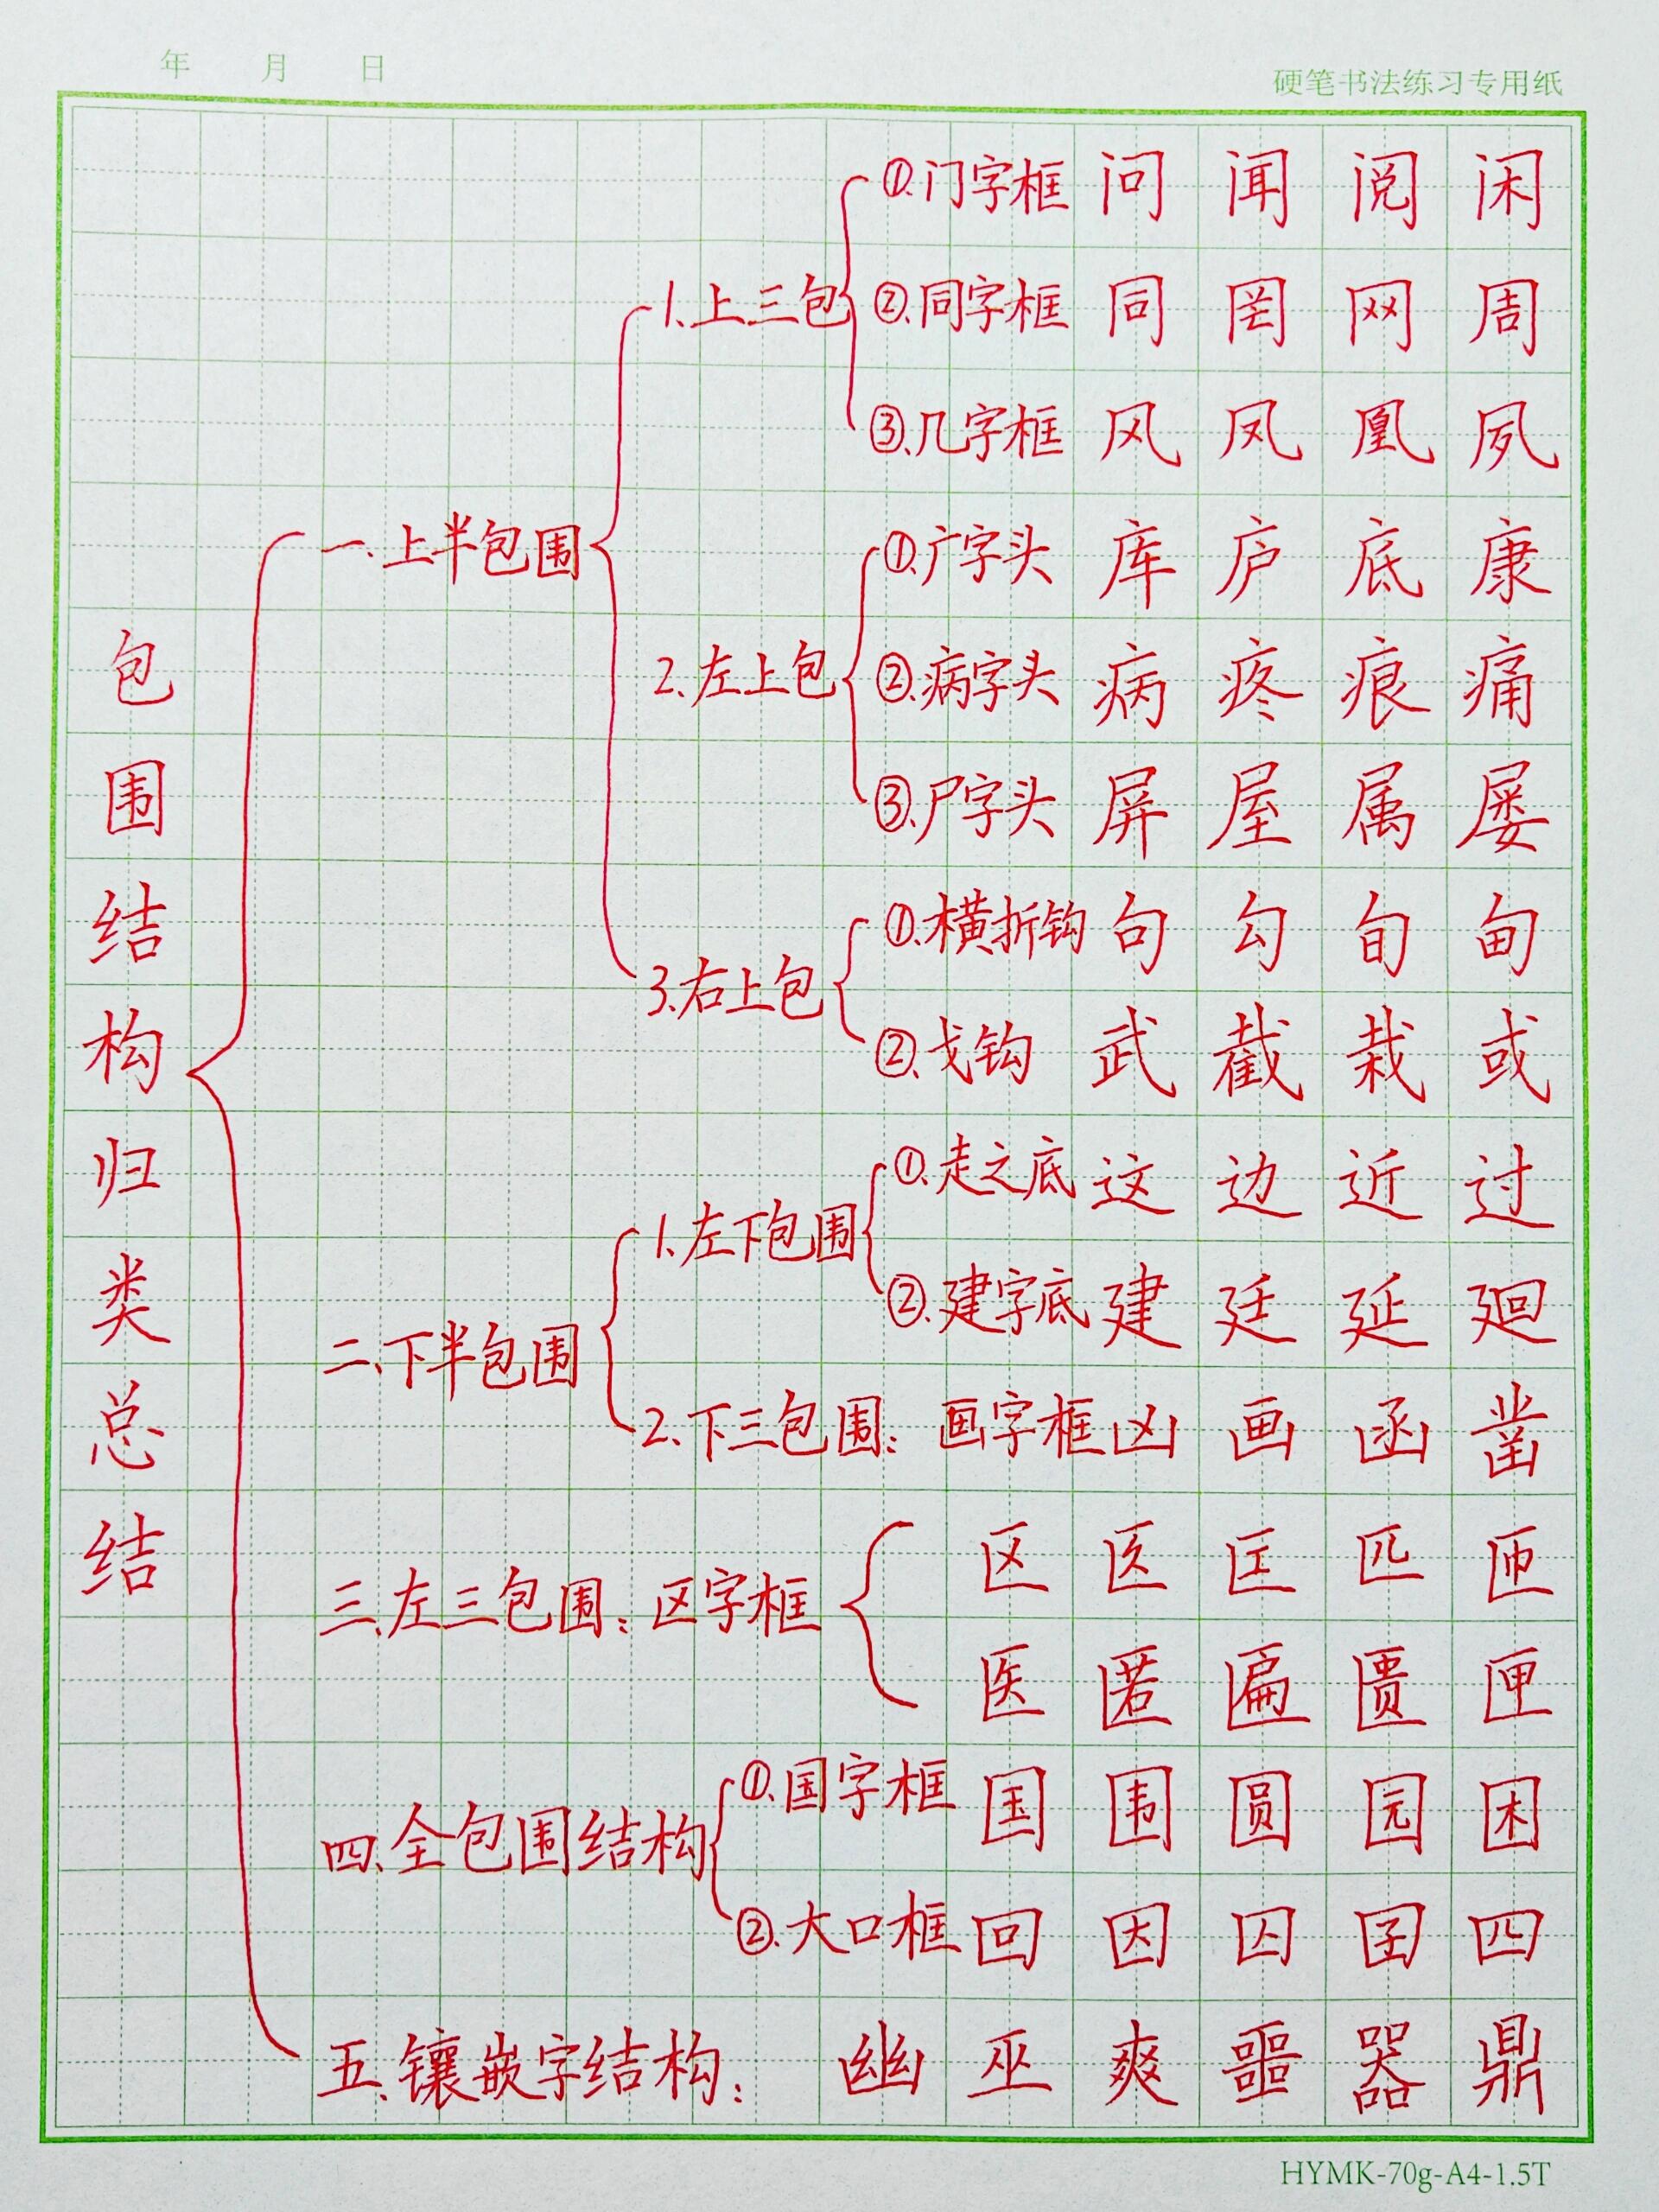 年 月 日
硬笔书法练习专用纸
包围结构归类总结
一、上半包围
1.上三包
①.门字框 问 闻 阅 闲
②.同字框 同 罔 网 周
③.几字框 风 凤 凰 夙
2.左上包
①.广字头 库 庐 底 康
②.病字头 病 疼 痕 痛
③.尸字头 屏 屋 属 屡
3.右上包
①.横折钩 句 勾 旬 甸
②.戈钩 武 截 栽 或
二、下半包围
1.左下包围
①.走之底 这 边 近 过
②.建字底 建 廷 延 廻
2.下三包围：画字框 凶 画 函 凿
三、左三包围：区字框
区 医 匡 匹 匝
医 匿 匾 匮 匣
四、全包围结构
①.国字框 国 围 圆 园 困
②.大口框 回 因 囚 囹 四
五、镶嵌字结构： 幽 巫 爽 噩 器 鼎
HYMK-70g-A4-1.5T